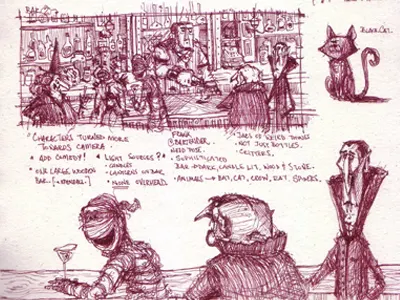 BAR
BLACK CAT.
"CHARACTERS TURNED MORE
TOWARDS CAMERA.
• ADD COMEDY!
• ONE LARGE WOODEN
BAR.
• LIGHT SOURCES?
• CANDLES
• LANTERNS ON BAR
• NONE OVERHEAD.
FRANK
@ BARTENDER.
NEED POSE.
• SOPHISTICATED
BAR → DARK, CANDLE LIT, WOOD & STONE.
• ANIMALS → BAT, CAT, CROW, RAT, SPIDERS.
• JARS OF WEIRD THINGS
• NOT JUST BOTTLES.
• CRITTERS.